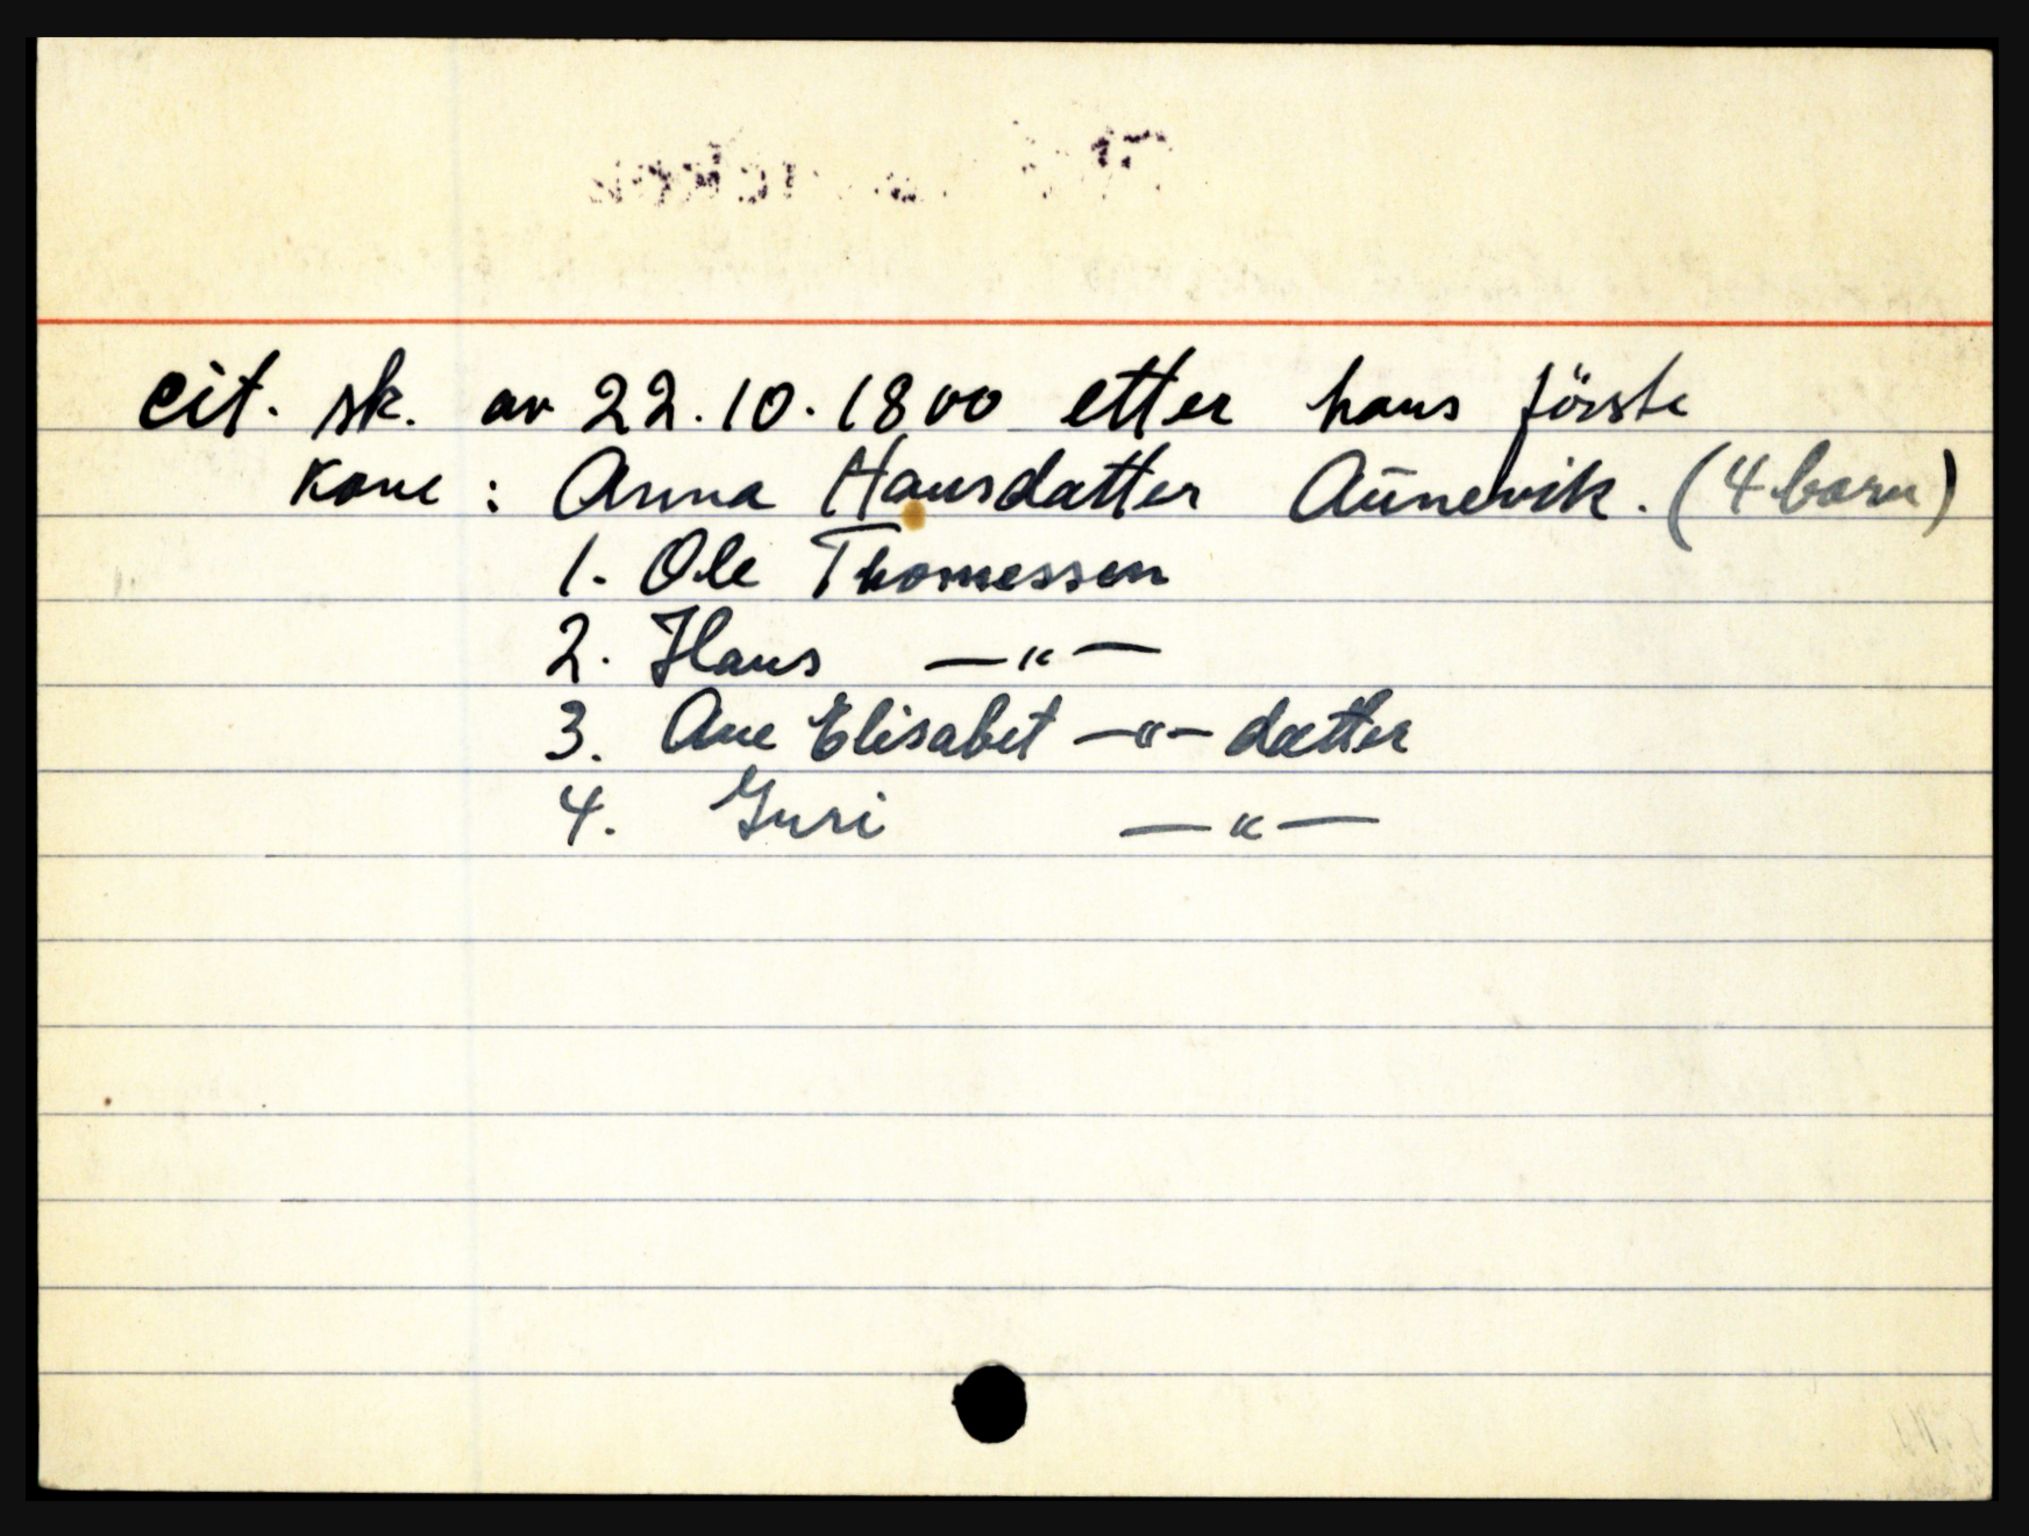 cit. sk. av 22.10.1800 etter hans förste
Kone : Anna Hansdatter Aünevik. (4 born)
1. Ole Thomessen
2. Hans —"—
3. Ane Elisabet —"— datter
4. Guri —"—